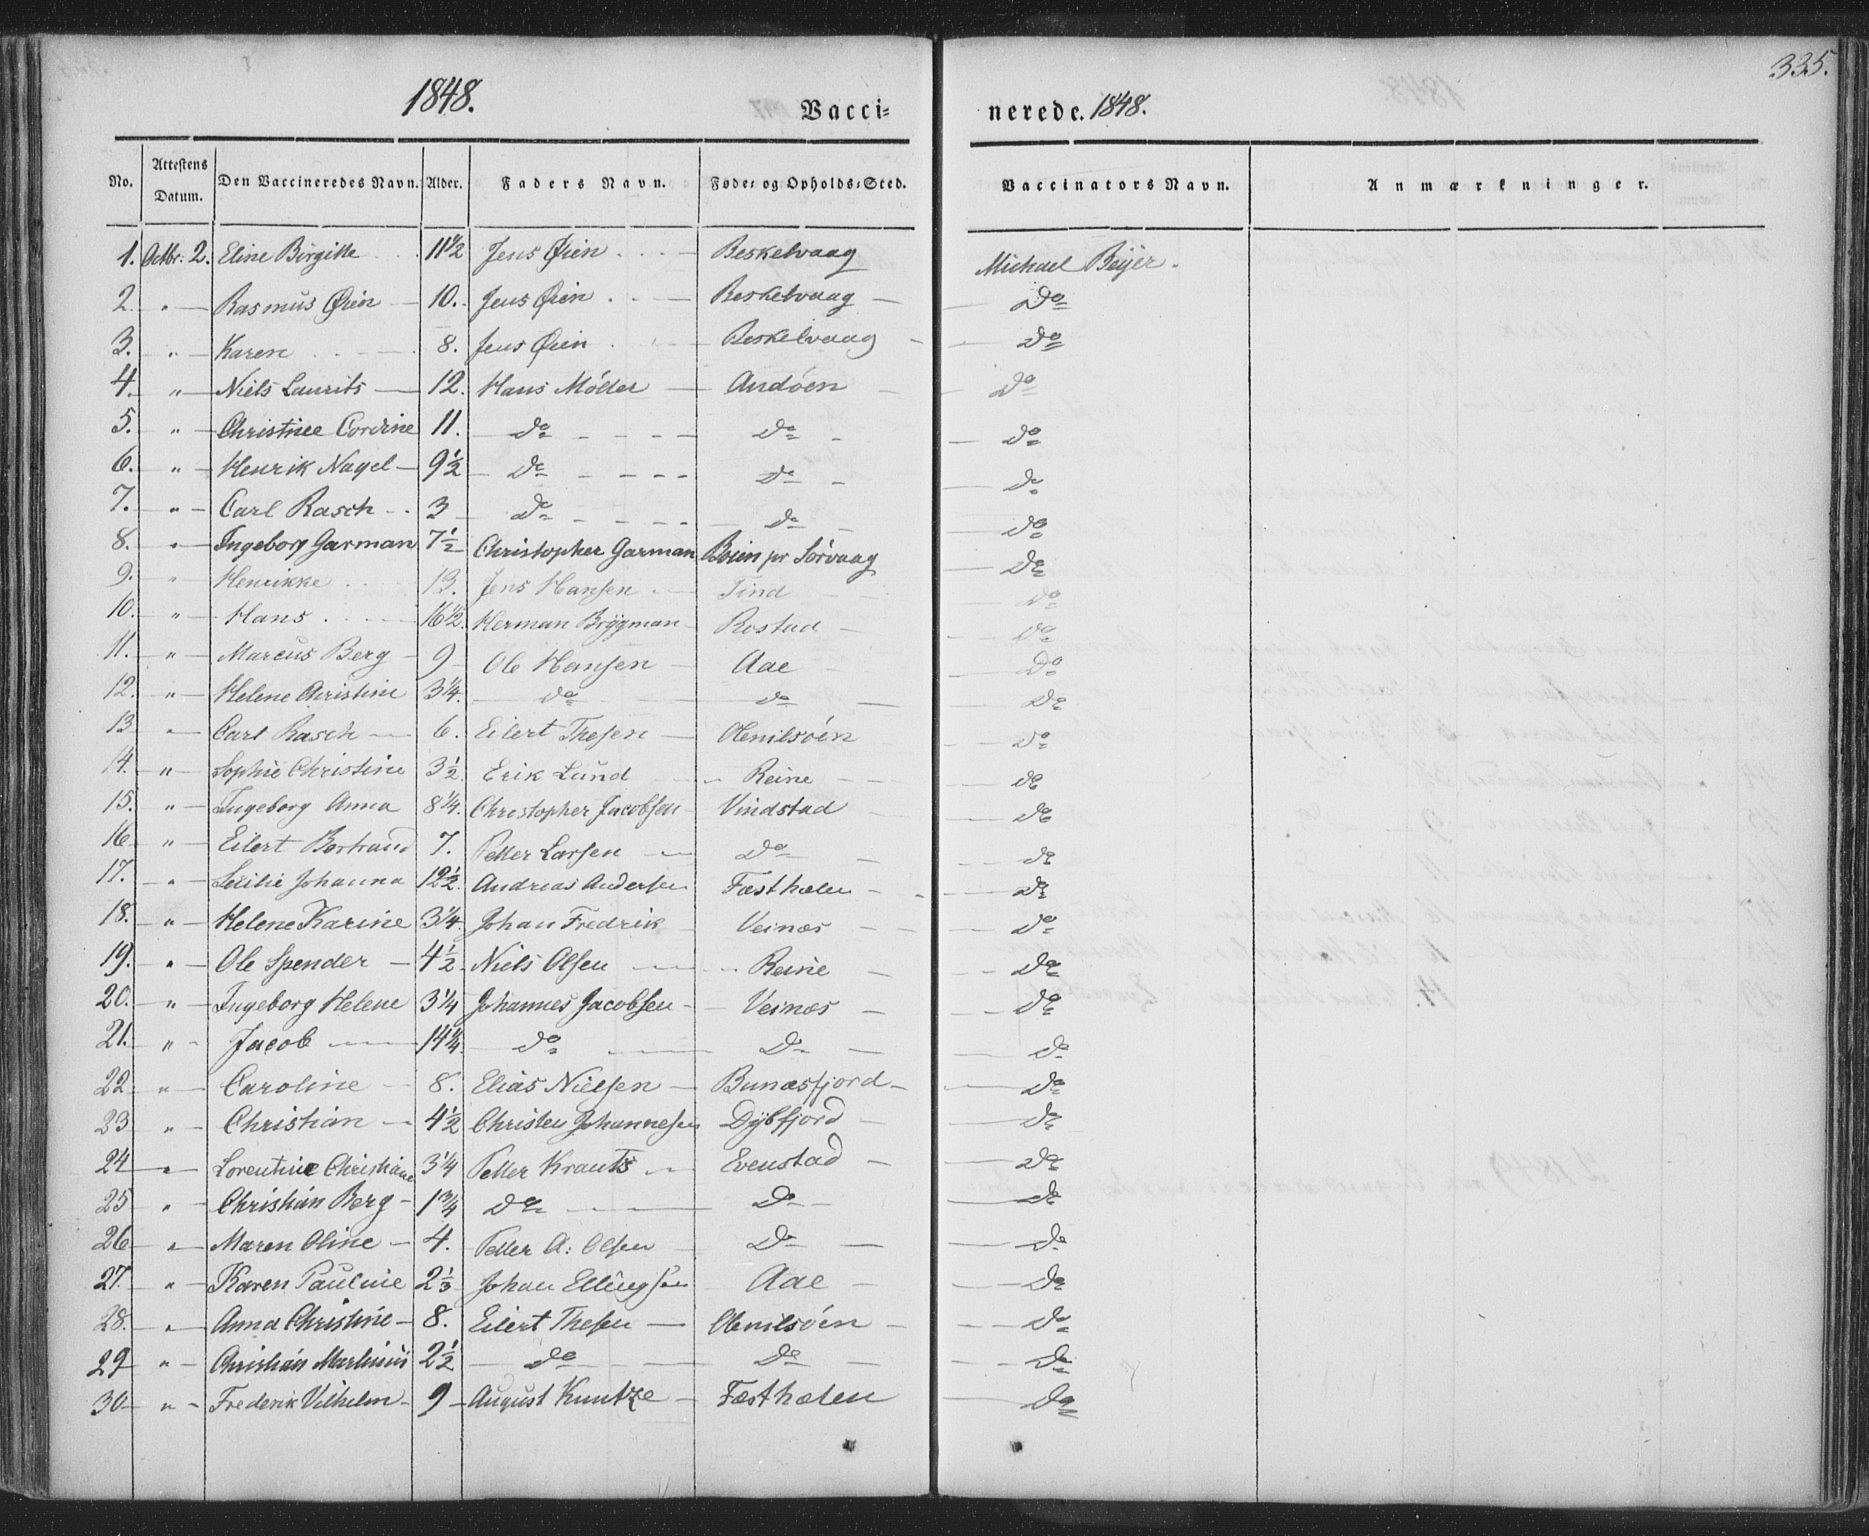 335.
1848. Vacci= nerede. 1848.
No. Attestens Datum. Den Vaccineredes Navn. Alder. Faders Navn. Føde= og Opholds=Sted. Vaccinators Navn. Anmærkninger.
1. Octbr: 2. Eline Birgitte 11 1/2 Jens Øien Beskelvaag Michael Beijer.
2. " Rasmus Øien 10. Jens Øien Beskelvaag Do
3. " Karen 8. Jens Øien Beskelvaag Do
4. " Niels Laurits 12. Hans Möller Andöen Do
5. " Christine Cordine 11. Do Do Do
6. " Henrik Nagel 9 1/2 Do Do Do
7. " Carl Rasch 3 Do Do Do
8. " Ingeborg Garman 7 1/2 Christopher Garman Boien pr Sörvaag Do
9. " Henrikke 13. Jens Hansen Tind Do
10. " Hans 16 1/2. Herman Brÿgman Rostad Do
11. " Marcus Berg 9 Ole Hansen Aae Do
12. " Helene Christine 3 1/4. do do Do
13 " Carl Rasch 6. Eilert Thesen Olenilsöen Do
14. " Sophie Christine 3 1/2. Erik Lund Reine do
15. " Ingeborg Anna 8 1/4. Christopher Jacobsen Vindstad do
16 " Eilert Bertrand 7. Petter Larsen Do do
17. " Cecilie Johanna 12 1/2. Andreas Andersen Fæsthælen do
18. " Helene Karine 3 1/4. Johan Fredrik Veinæs Do
19. " Ole Spender 4 1/2 Niels Olsen Reine Do
20. " Ingeborg Helene 3 1/4 Johannes Jacobsen Veinæs Do
21. " Jacob 14 1/4 do Do Do
22 " Caroline 8. Elias Nielsen Bunæsfjord Do
23 " Christian 4 1/2 Christen Johannesen Dÿbfjord Do
24 " Lorentine Christiane 3 1/4 Petter Krauts Evenstad Do
25 " Christian Berg 1 3/4 do Do do
26 " Maren Oline 4. Petter A: Olsen Do do
27. " Karen Pauline 2 1/3 Johan Ellingsen Aae Do
28. " Anna Christine 8. Eilert Thesen Olenilsöen Do
29 " Christian Martinus 2 1/2 do Do Do
30 " Frederik Vilhelm 9 August Kuntze Fæsthælen Do